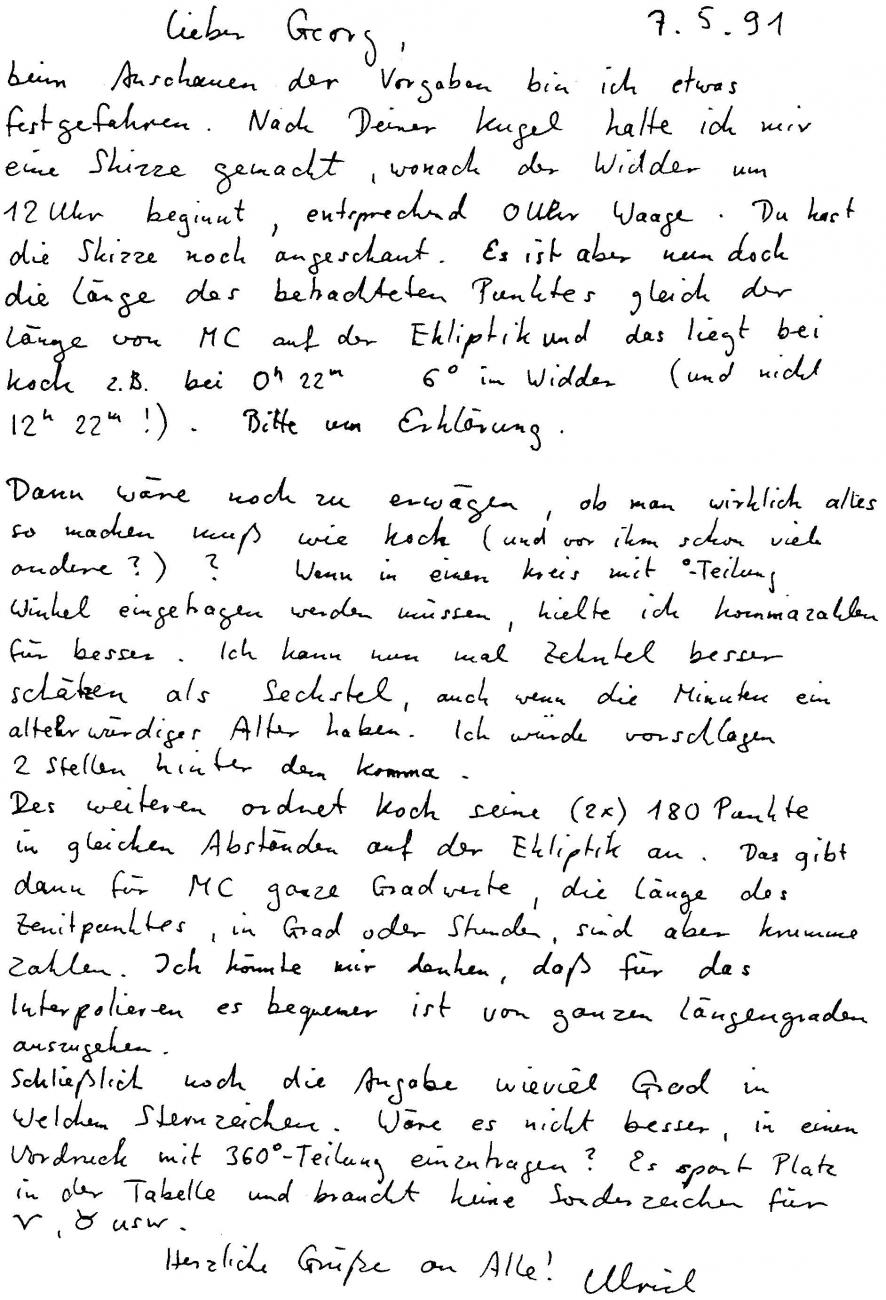 Lieber Georg, 7.5.91
beim Anschauen der Vorgaben bin ich etwas
festgefahren. Nach Deiner Kugel hatte ich mir
eine Skizze gemacht, wonach der Widder um
12 Uhr beginnt, entsprechend 0 Uhr Waage. Du hast
die Skizze noch angeschaut. Es ist aber nun doch
die Länge des betrachteten Punktes gleich der
Länge von MC auf der Ekliptik und das liegt bei
Koch z.B. bei 0ʰ 22ᵐ 6° im Widder (und nicht
12ʰ 22ᵐ!). Bitte um Erklärung.
Dann wäre noch zu erwägen, ob man wirklich alles
so machen muß wie Koch (und vor ihm schon viele
andere?)? Wenn in einen Kreis mit °-Teilung
Winkel eingetragen werden müssen, hielte ich Kommazahlen
für besser. Ich kann nun mal Zehntel besser
schätzen als Sechstel, auch wenn die Minuten ein
altehrwürdiges Alter haben. Ich würde vorschlagen
2 Stellen hinter dem Komma.
Des weiteren ordnet Koch seine (2x) 180 Punkte
in gleichen Abständen auf der Ekliptik an. Das gibt
dann für MC ganze Gradwerte, die Länge des
Zenitpunktes, in Grad oder Stunden, sind aber krumme
Zahlen. Ich könnte mir denken, daß für das
Interpolieren es bequemer ist von ganzen Längengraden
auszugehen.
Schließlich noch die Angabe wieviel Grad in
welchem Sternzeichen. Wäre es nicht besser, in einen
Vordruck mit 360°-Teilung einzutragen? Es spart Platz
in der Tabelle und braucht keine Sonderzeichen für
♈, ♉ usw.
Herzliche Grüße an Alle! Ulrich